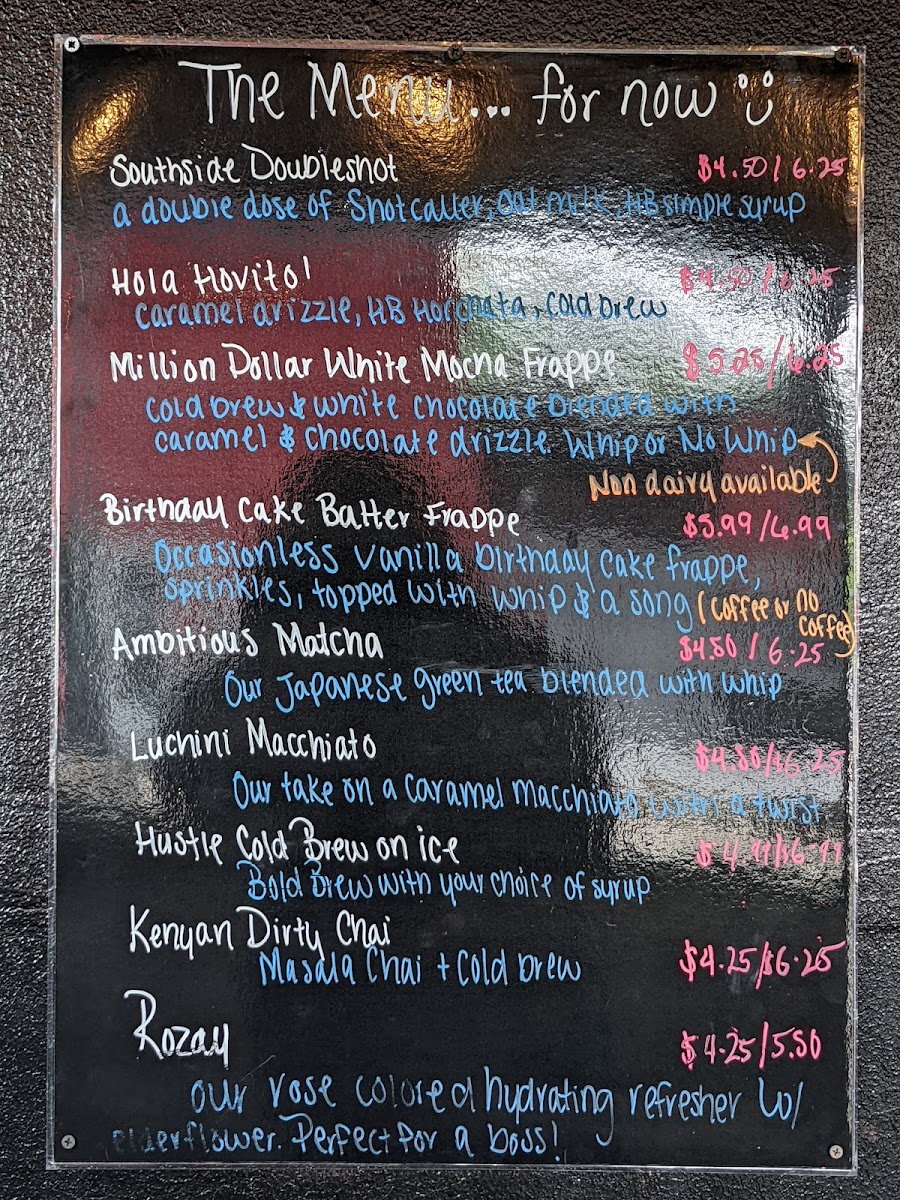 The Menu... for now
Southside Doubleshot $4.50/6.25
a double dose of Shotcaller, oat milk, HB simple syrup
Hola Hovito! $4.50/6.25
caramel drizzle, HB Horchata, cold brew
Million Dollar White Mocha Frappe $5.25/6.25
cold brew & white chocolate blended with
caramel & chocolate drizzle. Whip or No Whip
Non dairy available
Birthday Cake Batter Frappe $5.99/6.99
Occasionless vanilla birthday cake frappe,
sprinkles, topped with whip & a song (coffee or no
coffee)
Ambitious Matcha $4.50/6.25
Our Japanese green tea blended with whip
Luchini Macchiato $4.50/$6.25
Our take on a caramel macchiato with a twist
Hustle Cold Brew on ice $4.99/$6.99
Bold Brew with your choice of syrup
Kenyan Dirty Chai
Masala Chai + Cold brew $4.25/$6.25
Rozay $4.25/5.50
our rose colored hydrating refresher w/
elderflower. Perfect for a boss!